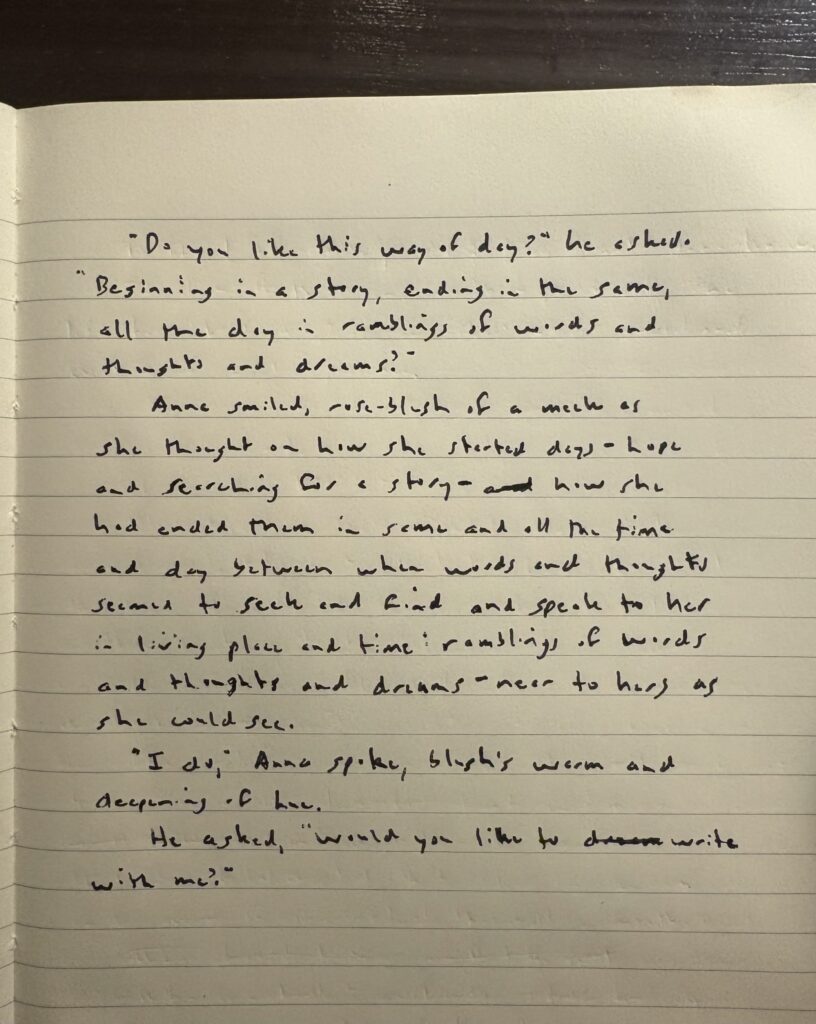 "Do you like this way of day?" he asked.
"Beginning in a story, ending in the same,
all the day in ramblings of words and
thoughts and dreams?"
Anna smiled, rose-blush of a meek as
she thought on how she started days - hope
and searching for a story - and how she
had ended them in same and all the time
and day between when words and thoughts
seemed to seek and find and speak to her
in living place and time: ramblings of words
and thoughts and dreams - near to hers as
she could see.
"I do," Anna spoke, blush's warm and
deepening of hue.
He asked, "Would you like to dream write
with me?"